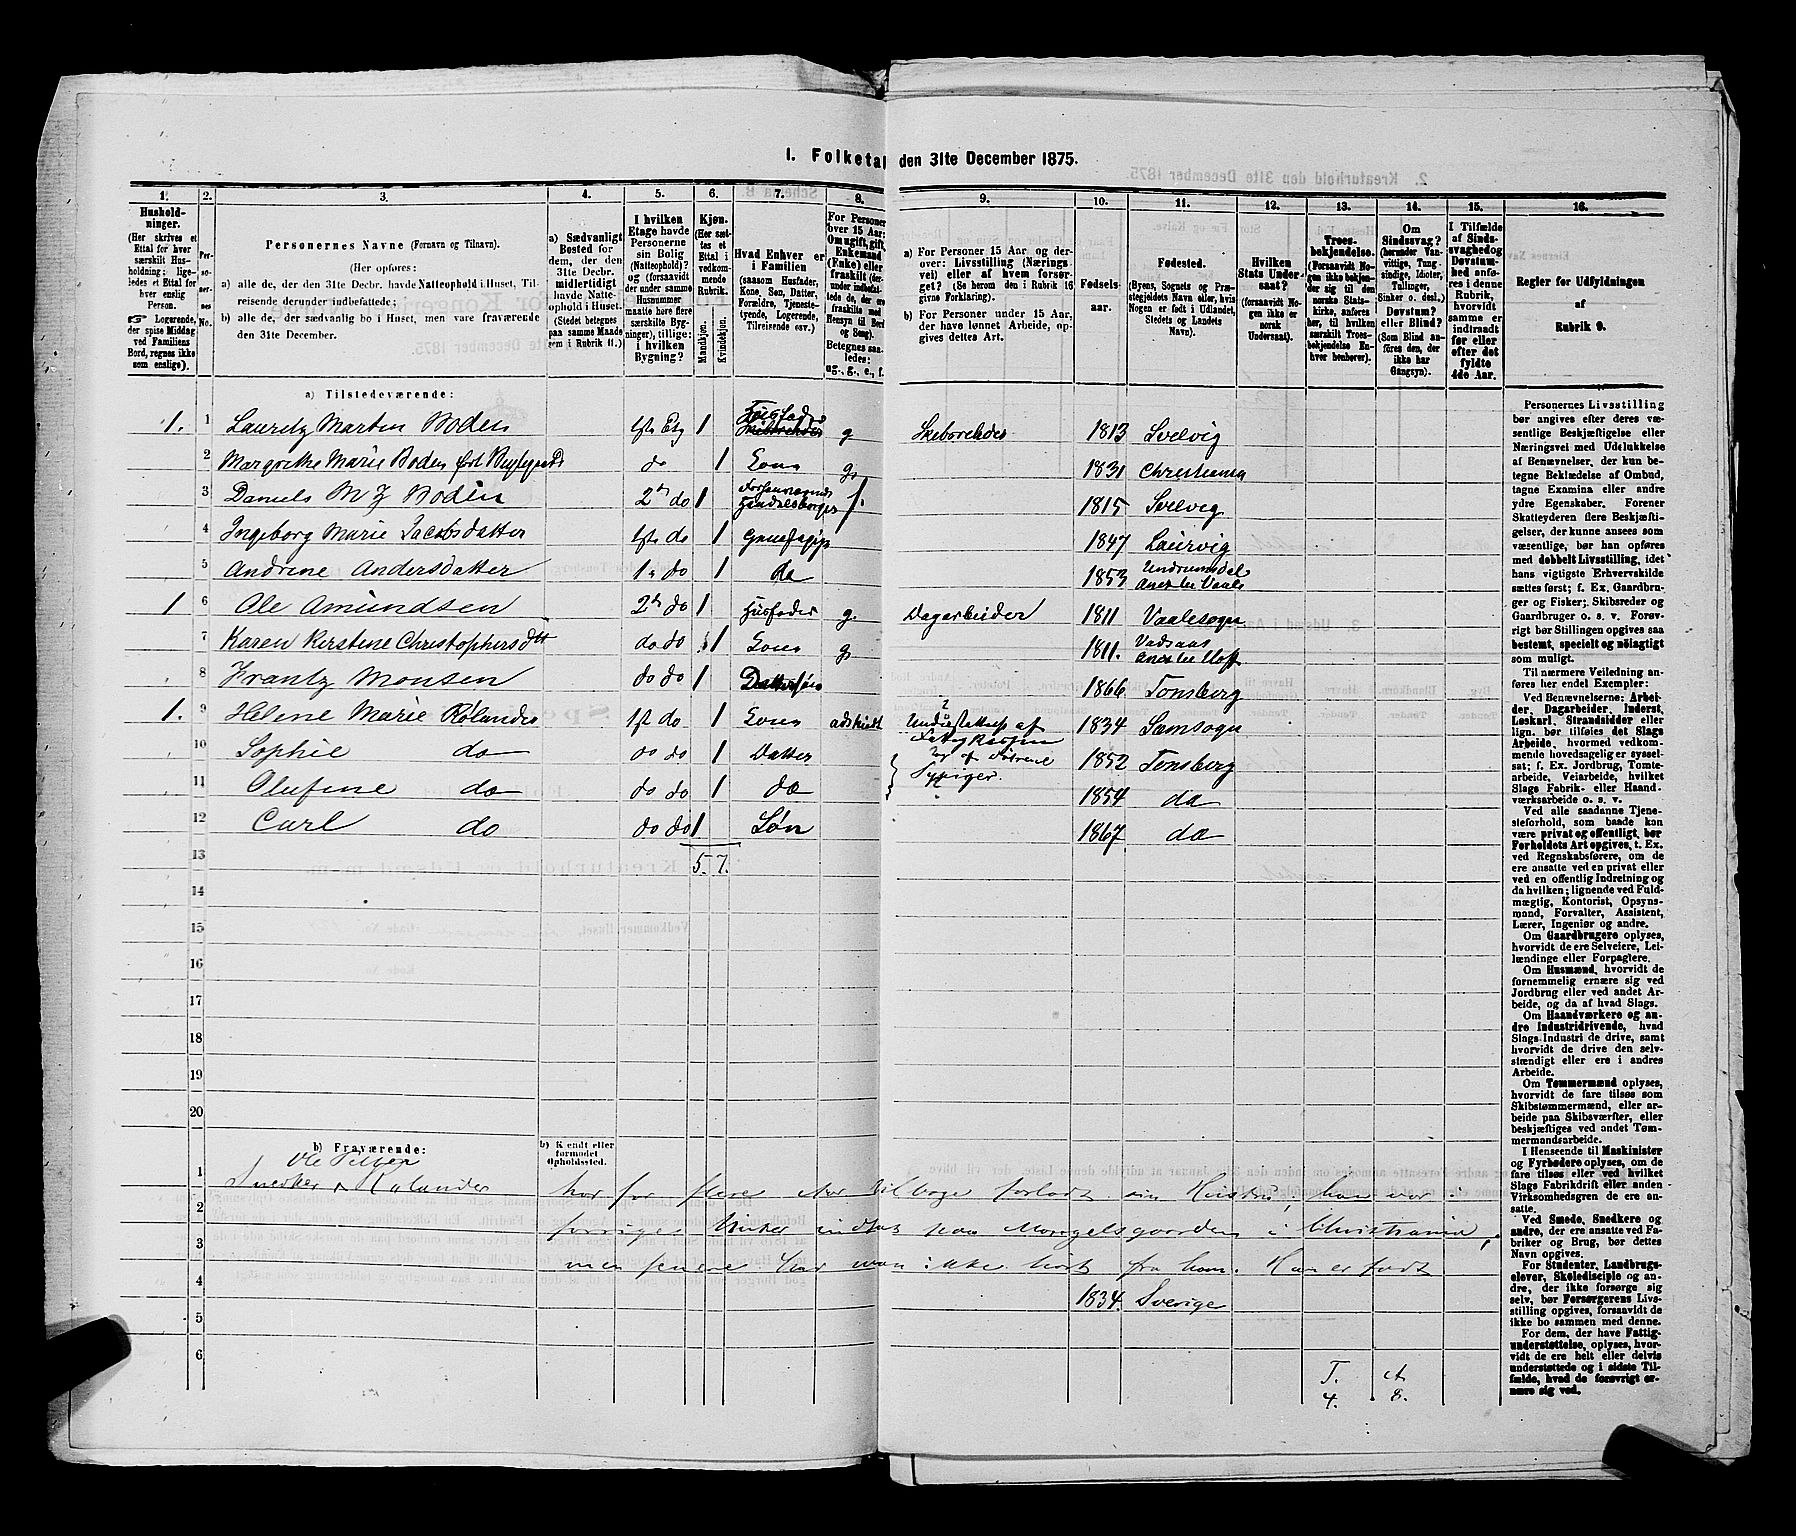 I. Folketal den 31te December 1875.
1. 2. 3. 4. 5. 6. 7. 8. 9. 10. 11. 12. 13. 14. 15. 16.
Hushold-
ninger.
(Her skrives et
Ettal for hver
særskilt Hus-
holdning; lige-
ledes et Ettal for
hver enslig
Person.
☞ Logerende,
der spise Middag
ved Familiens
Bord, regnes ikke
som enslige).
Per-
so-
ner-
nes
No.
Personernes Navne (Fornavn og Tilnavn).
(Her opføres:
a) alle de, der den 31te Decbr. havde Natteophold i Huset, Til-
reisende derunder indbefattede;
b) alle de, der sædvanlig bo i Huset, men vare fraværende
den 31te December.
a) Sædvanligt
Bosted for
dem, der den
31te Decbr.
midlertidigt
havde Natte-
ophold i Huset.
(Stedet betegnes
paa samme Maade
som i Rubrik 11.)
I hvilken
Etage havde
Personerne
sin Bolig
(Natteophold)?
(forsaavidt
der under samme
Husnummer
maatte høre flere
særskilte Byg-
ninger), tillige:
i hvilken
Bygning?
Kjøn.
(Her sæt-
tes et
Ettal i
vedkom-
mende
Rubrik.
Mandkjøn.
Kvindekjøn.
Hvad Enhver er
i Familien
(saasom Husfader,
Kone, Søn, Datter,
Forældre, Tjeneste-
tyende, Logerende,
Tilreisende osv.)
For Personer
over 15 Aar:
Om ugift, gift,
Enkemand
(Enke) eller
fraskilt
Betegnes saa-
ledes:
ug., g., e., f.
a) For Personer 15 Aar og der-
over: Livsstilling (Nærings-
vei) eller af hvem forsør-
get? (Se herom den i Rubrik 16
givne Forklaring).
b) For Personer under 15 Aar,
der have lønnet Arbeide, op-
gives dettes Art.
Fødsels-
aar.
Fødested.
(Byens, Sognets og Præ-
stegjeldets Navn eller, hvis
Nogen er født i Udlandet,
Stedets og Landets
Navn).
Hvilken
Stats Under-
saat?
(forsaavidt No-
gen ikke er
norsk
Undersaat).
Troes-
bekjendelse.
(Forsaavidt No-
gen ikke bekjen-
der sig til den
norske Stats-
kirke, anføres
her, til hvilken
særskilt Troes-
bekjendelse En-
hver henhører).
Om
Sindssvag?
(herunder Van-
vittige, Tung-
sindige, Idioter,
Tullinger,
Sinker o. desl.)
Døvstum?
eller Blind?
(Som Blind an-
føres den, der
ikke har
Gangsyn).
I Tilfælde
af Sinds-
svaghed og
Døvstum-
hed anfø-
res i denne
Rubrik,
hvorvidt
samme er
indtraadt
før eller
efter det
fyldte
4de Aar.
Regler for Udfyldningen
af
Rubrik 9.
a) Tilstedeværende:
1. 1 Lauritz Martin Bodin 1ste Etg 1 Husfader g. Skibsrehder 1813 Svelvig
2 Margrethe Marie Boden do 1 Kone g. 1831 Christiania
3 Daniels M J Bodin 2den do 1 Handelsborger f. 1815 Svelvig
4 Ingeborg Marie Jacobsdatter 1ste do 1 1847 Laurvig
5 Andrine Andersdatter 1. do 1 do 1853
1 6 Ole Amundsen 2den do 1 Husfader g. Dagarbeider 1811 Vaalesogn
7 Karen Kirstene Christophersdtt do do 1 Kone g. 1811.
8 Frantz Monsen do do 1 Dattersøn 1866 Tonsberg
1. 9 Helene Marie Rolander 1st do 1 Kone adskildt Understøttes af 1834 Semsogn
10 Sophie do do do 1 Datter 1852 Tonsberg
11 Olefine do do do 1 do 1854 do
12 Carl do do do 1 Søn 1867 do
13 5. 7.
14
15
16
17
18
19
20
b) Fraværende:
b) Kjendt eller
formodet
Opholdssted.
Ole Petter
1 Snedker Rolander har for flere Aar tilbage forladt sin Hustru, han var i
2 forriges Vinter indsat paa Mangelsgaarden i Christiania,
3 men senere har man ikke hørt fra ham. Han er født
4 1834 Sverige
5
6
T. A
4. 8.
Personernes Livsstilling
bør angives efter deres væ-
sentlige Beskjæftigelse eller
Næringsvei med Udelukkelse
af Benævnelser, der kun be-
tegne Beklædelse af Ombud,
tagne Examina eller andre
ydre Egenskaber. Forener
Skatteyderen flere Beskjæfti-
gelser, der kunne ansees som
væsentlige, bør han opføres
med dobbelt Livsstilling, idet
hans vigtigste Erhvervskilde
sættes først; f. Ex. Gaardbru-
ger og Fisker; Skibsreder og
Gaardbruger o. s. v. Forøv-
rigt bør Stillingen opgives saa
bestemt, specielt og nøiagtigt
som muligt.
Til nærmere Veiledning an-
føres her endel Exempler:
Ved Benævnelserne: Arbei-
der, Dagarbeider, Inderst,
Løskarl, Strandsidder eller
lign. bør tilføies det Slags
Arbeide, hvormed vedkom-
mende hovedsagelig er syssel-
sat; f. Ex. Jordbrug, Tomte-
arbeide, Veiarbeide, hvilket
Slags Fabrik- eller Haand-
værksarbeide o. s. v.
Ved alle saadanne Tjene-
steforhold, som baade kan
være privat og offentligt, bør
Forholdets Art opgives, t. Ex.
ved Regnskabsførere, om de
ere ansatte ved en privat eller
ved en offentlig Indretning og
da hvilken; lignende ved Fuld-
mægtig, Kontorist, Opsyns-
mand, Forvalter, Assistent,
Lærer, Ingeniør og andre.
Om Gaardbrugere oplyses,
hvorvidt de ere Selveiere, Lei-
lændinge eller Forpagtere.
Om Husmænd, hvorvidt de
fornemmelig ernære sig ved
Jordbrug eller ved andet Ar-
beide, og da af hvad Slags.
Om Haandværkere og an-
dre Industridrivende, hvad
Slags Industri de drive, samt
hvorvidt de drive den selv-
stændigt eller ere i andres
Arbeide.
Om Tømmermænd oplyses,
hvorvidt de fare tilsøs som
Skibstømmermænd, eller ar-
beide paa Skibsværfter, eller
beskjæftiges ved andet Tøm-
mermandsarbeide.
I Henseende til Maskinister
og Fyrbødere oplyses, om de
fare tilsøs eller ved hvilket
Slags Fabrikdrift eller anden
Virksomhedsgren de ere an-
satte.
Ved Smede, Snedkere og
andre, der ere ansatte ved Fa-
briker og Brug, bør dettes
Navn opgives.
For Studenter, Landbrugs-
elever, Skoledisciple og an-
dre, der ikke forsørge sig
selv, bør Forsørgerens Livs-
stilling opgives, forsaavidt de
ikke bo sammen med denne.
For dem, der have Fattig-
understøttelse, oplyses, hvor-
vidt de ere helt eller delvis
understøttede og i sidste Til-
fælde, hvad de forøvrigt er-
nære sig ved.